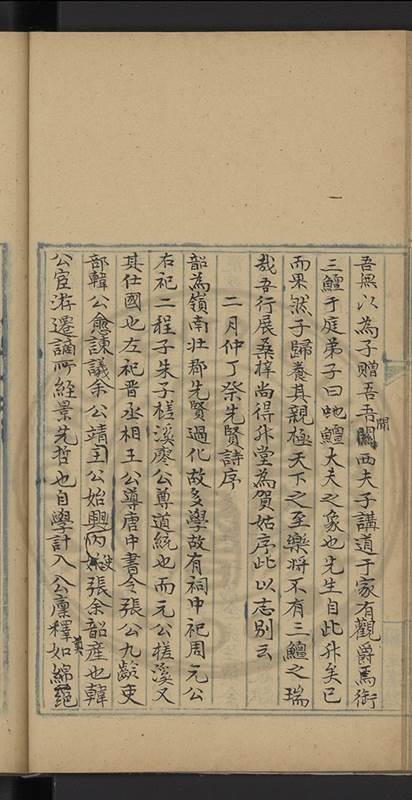 吾無以為子贈吾聞關西夫子講道于家有觀爵馬銜
三鱣于庭弟子曰此鱣大夫之象也先生自此升矣已
而果然子歸養其親極天下之至樂將不有三鱣之瑞
哉吾行展桑梓尚得升堂為賀姑序此以志別云
二月仲丁祭先賢詩序
韶為嶺南壯郡先賢過化故多學故有祠中祀周元公
右祀二程子朱子槎溪廖公尊道統也而元公槎溪又
其仕國也左祀晋丞相王公導唐中書令張公九齡吏
部韓公愈諫議余公靖王公始興內史張余韶產也韓
公宦游遷謫所經景先哲也自學計入公廩釋奠如綿蕝